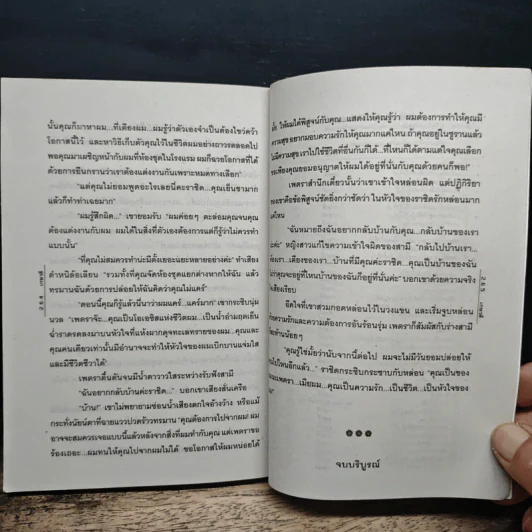 นั้นคุณก็มาหาผม...ที่เตียงผม...ผมรู้ว่าตัวเองจำเป็นต้องไขว่คว้า
โอกาสนี้ไว้ และหาวิธีเก็บตัวคุณไว้ในชีวิตผมอย่างถาวรตลอดไป
พอคุณมาเผชิญหน้ากับผมที่ห้องชุดในโรงแรม ผมก็ฉวยโอกาสที่ได้
ด้วยการยืนกรานว่าเราต้องแต่งงานกันเพราะหมดทางเลือก"
"แต่คุณไม่ยอมพูดอะไรเลยนี่คะราชิด...คุณเย็นชามาก
แล้วก็ทำท่าเฉยมาก"
"ผมรู้สึกผิด..." เขายอมรับ "ผมค่อยๆ ตะล่อมคุณจนคุณ
ต้องแต่งงานกับผม ผมได้ในสิ่งที่ตัวเองต้องการแต่ก็รู้ว่าไม่ควรทำ
แบบนั้น"
"ที่คุณไม่สมควรทำน่ะมีตั้งเยอะแยะหลายอย่างค่ะ" เท่าเสียง
ตำหนิล้อเลียน "รวมทั้งที่คุณจัดห้องชุดแยกต่างหากให้ฉัน แล้ว
ทรมานฉันด้วยการปล่อยให้ฉันคิดว่าคุณไม่แคร์"
"ตอนนี้คุณก็รู้แล้วนี่นาว่าผมแคร์...แคร์มาก" เขากระซิบนุ่ม
นวล "เพตราจ๊ะ...คุณเป็นโอเอซิสแห่งชีวิตผม...เป็นน้ำอำมฤตเย็น
ฉ่ำราดรดลงมาบนหัวใจที่แห้งผากดุจทะเลทรายของผม...คุณและ
คุณคนเดียวเท่านั้นมีอำนาจจะทำให้หัวใจของผมเบิกบานแจ่มใส
และมีชีวิตชีวาได้"
เพตราตื้นตันจนมีน้ำตาวาวใสระหว่างรับฟังสามี
"ฉันอยากกลับบ้านค่ะราชิด..." บอกเขาเสียงสั่นเครือ
"บ้าน?" เขาไม่พยายามซ่อนน้ำเสียงตกใจอ้างว้าง หรือแม้
กระทั่งนัยน์ตาที่ฉายแววปวดร้าวทรมาน "คุณต้องการไปจากผม! ผม
อาจจะสมควรเจอแบบนี้แล้วหลังจากสิ่งที่ผมทำกับคุณ แต่เพตราขอ
ร้องเถอะ...ผมทนให้คุณไปจากผมไม่ได้ ขอโอกาสให้ผมหน่อยได้
ให้ผมได้พิสูจน์กับคุณ...แสดงให้คุณรู้ว่า ผมต้องการทำให้คุณมี
ความสุข อยากมอบความรักให้คุณมากแค่ไหน ถ้าคุณอยู่ในซูรานแล้ว
ไม่มีความสุข เราไปใช้ชีวิตที่อื่นกันก็ได้...ที่ไหนก็ได้ตามแต่ใจคุณเลือก
ขอเพียงคุณยอมอนุญาตให้ผมได้อยู่ที่นั่นกับคุณด้วยคนก็พอ!"
เพตราสำนึกเดี๋ยวนั้นว่าเขาเข้าใจหล่อนผิด แต่ปฏิกิริยา
ของเขาคือข้อพิสูจน์ชัดยิ่งกว่าชัดว่า ในหัวใจของราชิดรักหล่อนมาก
แค่ไหน
"ฉันหมายถึงฉันอยากกลับบ้านกับคุณ...กลับบ้านของเรา
ค่ะ" หญิงสาวแก้ไขความเข้าใจผิดของสามี "กลับไปบ้านเรา...
เตียงของเรา...บ้านที่มีคุณค่ะราชิด...คุณเป็นบ้านของฉัน
ไม่ว่าคุณจะอยู่ที่ไหนบ้านของฉันก็อยู่ที่นั่นค่ะ" บอกเขาด้วยความจริง
เสียงเรียบ
อึดใจที่เขาสวมกอดหล่อนไว้ในวงแขน และเริ่มจูบหล่อน
ด้วยความรักและความต้องการอันร้อนรุ่ม เพตราก็สัมผัสกับร่างสามี
สั่นสะท้านน้อยๆ
"คุณรู้ใช่มั้ยว่านับจากนี้ต่อไป ผมจะไม่มีวันยอมปล่อยให้
คุณไปไหนอีกแล้ว..." ราชิดกระซิบกระซาบกับหล่อน "คุณเป็นของ
ผม...เพตรา...เมียผม...คุณเป็นความรัก...เป็นชีวิต...เป็นหัวใจของ
จบบริบูรณ์